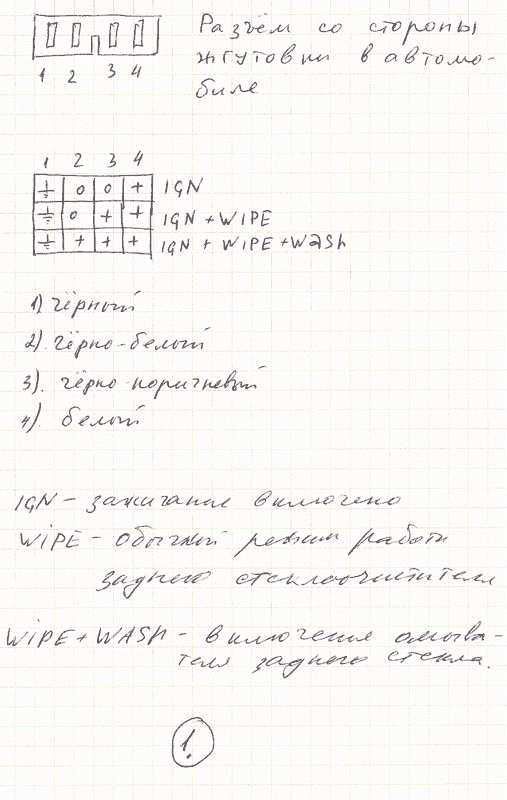 Разъём со стороны
1 2 3 4
жгутовки в автомо-
биле
1 2 3 4
⏚ 0 0 + IGN
⏚ 0 + + IGN + WIPE
⏚ + + + IGN + WIPE + WASH
1) чёрный
2). чёрно-белый
3). чёрно-коричневый
4). белый
IGN - зажигание включено
WIPE - обычный режим работы
заднего стеклоочистителя
WIPE + WASH - включение омыва-
теля заднего стекла.
1.